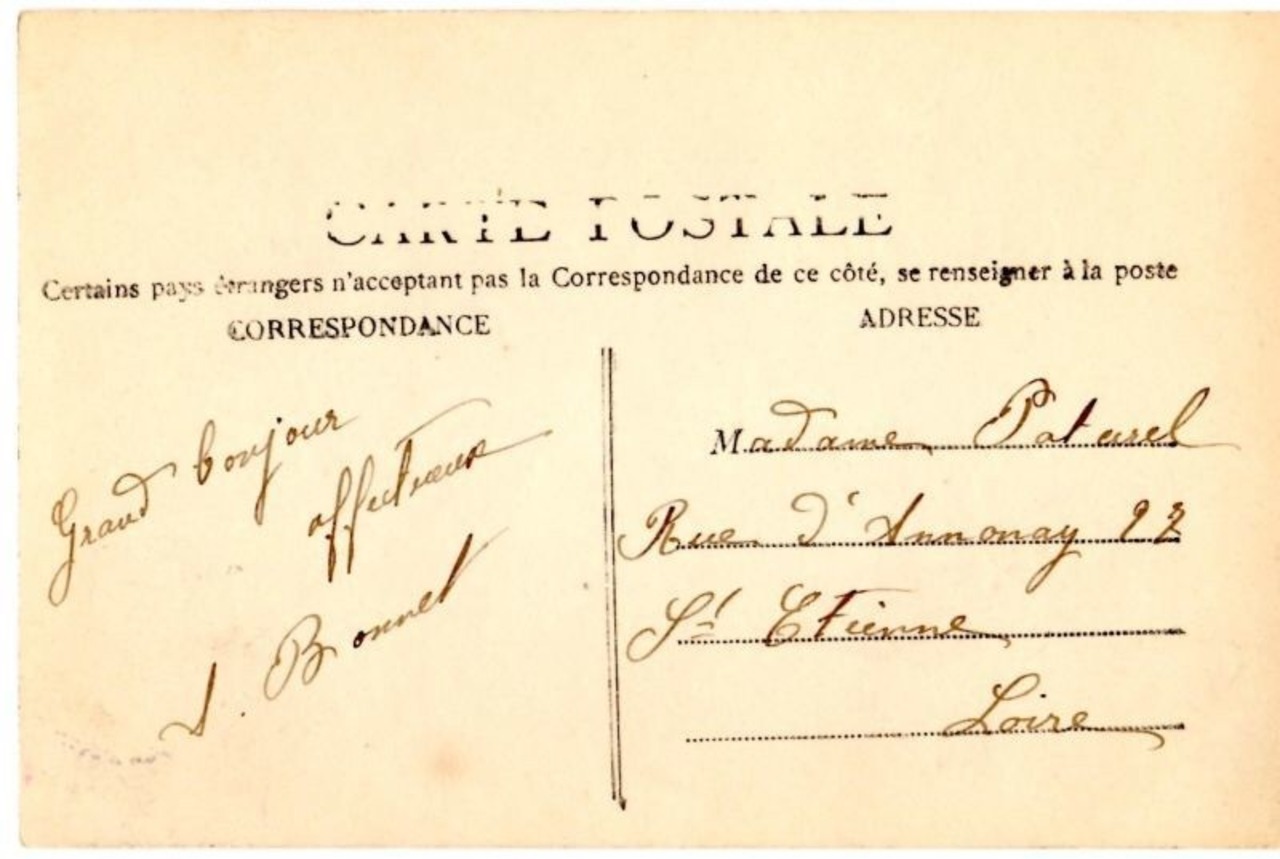 CARTE POSTALE
Certains pays étrangers n'acceptant pas la Correspondance de ce côté, se renseigner à la poste
CORRESPONDANCE
ADRESSE
Grand bonjour
affectueux
Bonnet
Madame Paturel
Rue d'Annonay
St Etienne
Loire